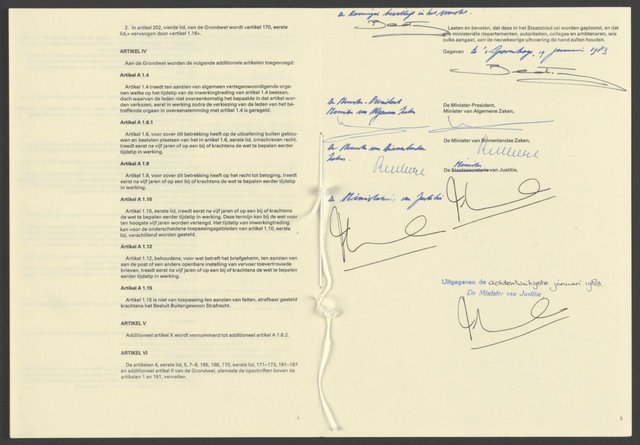 2. In artikel 202, vierde lid, van de Grondwet wordt «artikel 170, eerste
lid,» vervangen door «artikel 1.16».
ARTIKEL IV
Aan de Grondwet worden de volgende additionele artikelen toegevoegd:
Artikel A 1.4
Artikel 1.4 treedt ten aanzien van algemeen vertegenwoordigende orga-
nen welke op het tijdstip van de inwerkingtreding van artikel 1.4 bestaan,
doch waarvan de leden niet overeenkomstig het bepaalde in dat artikel wor-
den verkozen, eerst in werking zodra de verkiezing van de leden van het be-
treffende orgaan in overeenstemming met artikel 1.4 is geregeld.
Artikel A 1.6.1
Artikel 1.6, voor zover dit betrekking heeft op de uitoefening buiten gebou-
wen en besloten plaatsen van het in artikel 1.6, eerste lid, omschreven recht,
treedt eerst na vijf jaren of op een bij of krachtens de wet te bepalen eerder
tijdstip in werking.
Artikel A 1.9
Artikel 1.9, voor zover dit betrekking heeft op het recht tot betoging, treedt
eerst na vijf jaren of op een bij of krachtens de wet te bepalen eerder tijdstip
in werking.
Artikel A 1.10
Artikel 1.10, eerste lid, treedt eerst na vijf jaren of op een bij of krachtens
de wet te bepalen eerder tijdstip in werking. Deze termijn kan bij de wet voor
ten hoogste vijf jaren worden verlengd. Het tijdstip van inwerkingtreding
kan voor de onderscheidene toepassingsgebieden van artikel 1.10, eerste
lid, verschillend worden gesteld.
Artikel A 1.12
Artikel 1.12, behoudens, voor wat betreft het briefgeheim, ten aanzien van
aan de post of een andere openbare instelling van vervoer toevertrouwde
brieven, treedt eerst na vijf jaren of op een bij of krachtens de wet te bepalen
eerder tijdstip in werking.
Artikel A 1.15
Artikel 1.15 is niet van toepassing ten aanzien van feiten, strafbaar gesteld
krachtens het Besluit Buitengewoon Strafrecht.
ARTIKEL V
Additioneel artikel X wordt vernummerd tot additioneel artikel A 1.6.2.
ARTIKEL VI
De artikelen 4, eerste lid, 5, 7–9, 165, 168, 170, eerste lid, 171–173, 181–187
en additioneel artikel II van de Grondwet, alsmede de opschriften boven de
artikelen 1 en 181, vervallen.
Lasten en bevelen, dat deze in het Staatsblad zal worden geplaatst, en dat
alle ministeriële departementen, autoriteiten, colleges en ambtenaren, wie
zulks aangaat, aan de nauwkeurige uitvoering de hand zullen houden.
Gegeven te 's-Gravenhage, 19 januari 1983
de Minister-President
Minister van Algemene Zaken
De Minister-President,
Minister van Algemene Zaken,
de Minister van Binnenlandse
Zaken,
De Minister van Binnenlandse Zaken,
Minister
De Staatssecretaris van Justitie,
de Minister van Justitie
Uitgegeven de achtentwintigste januari 1983.
De Minister van Justitie